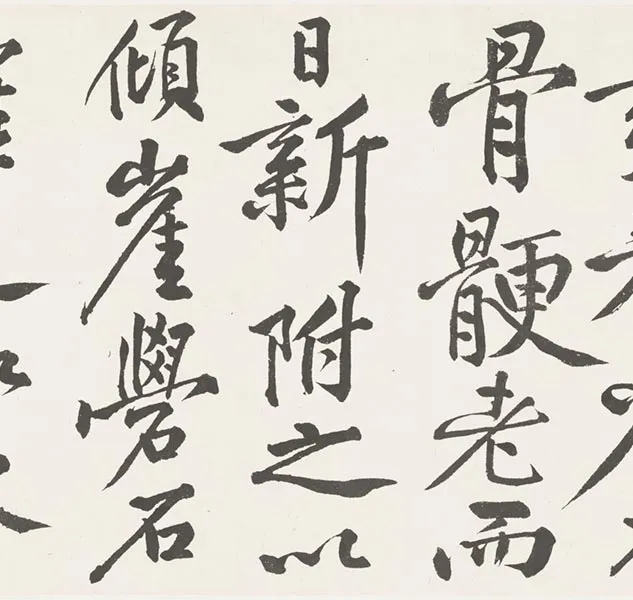 骨骾老而
日新附之以
傾崖礐石